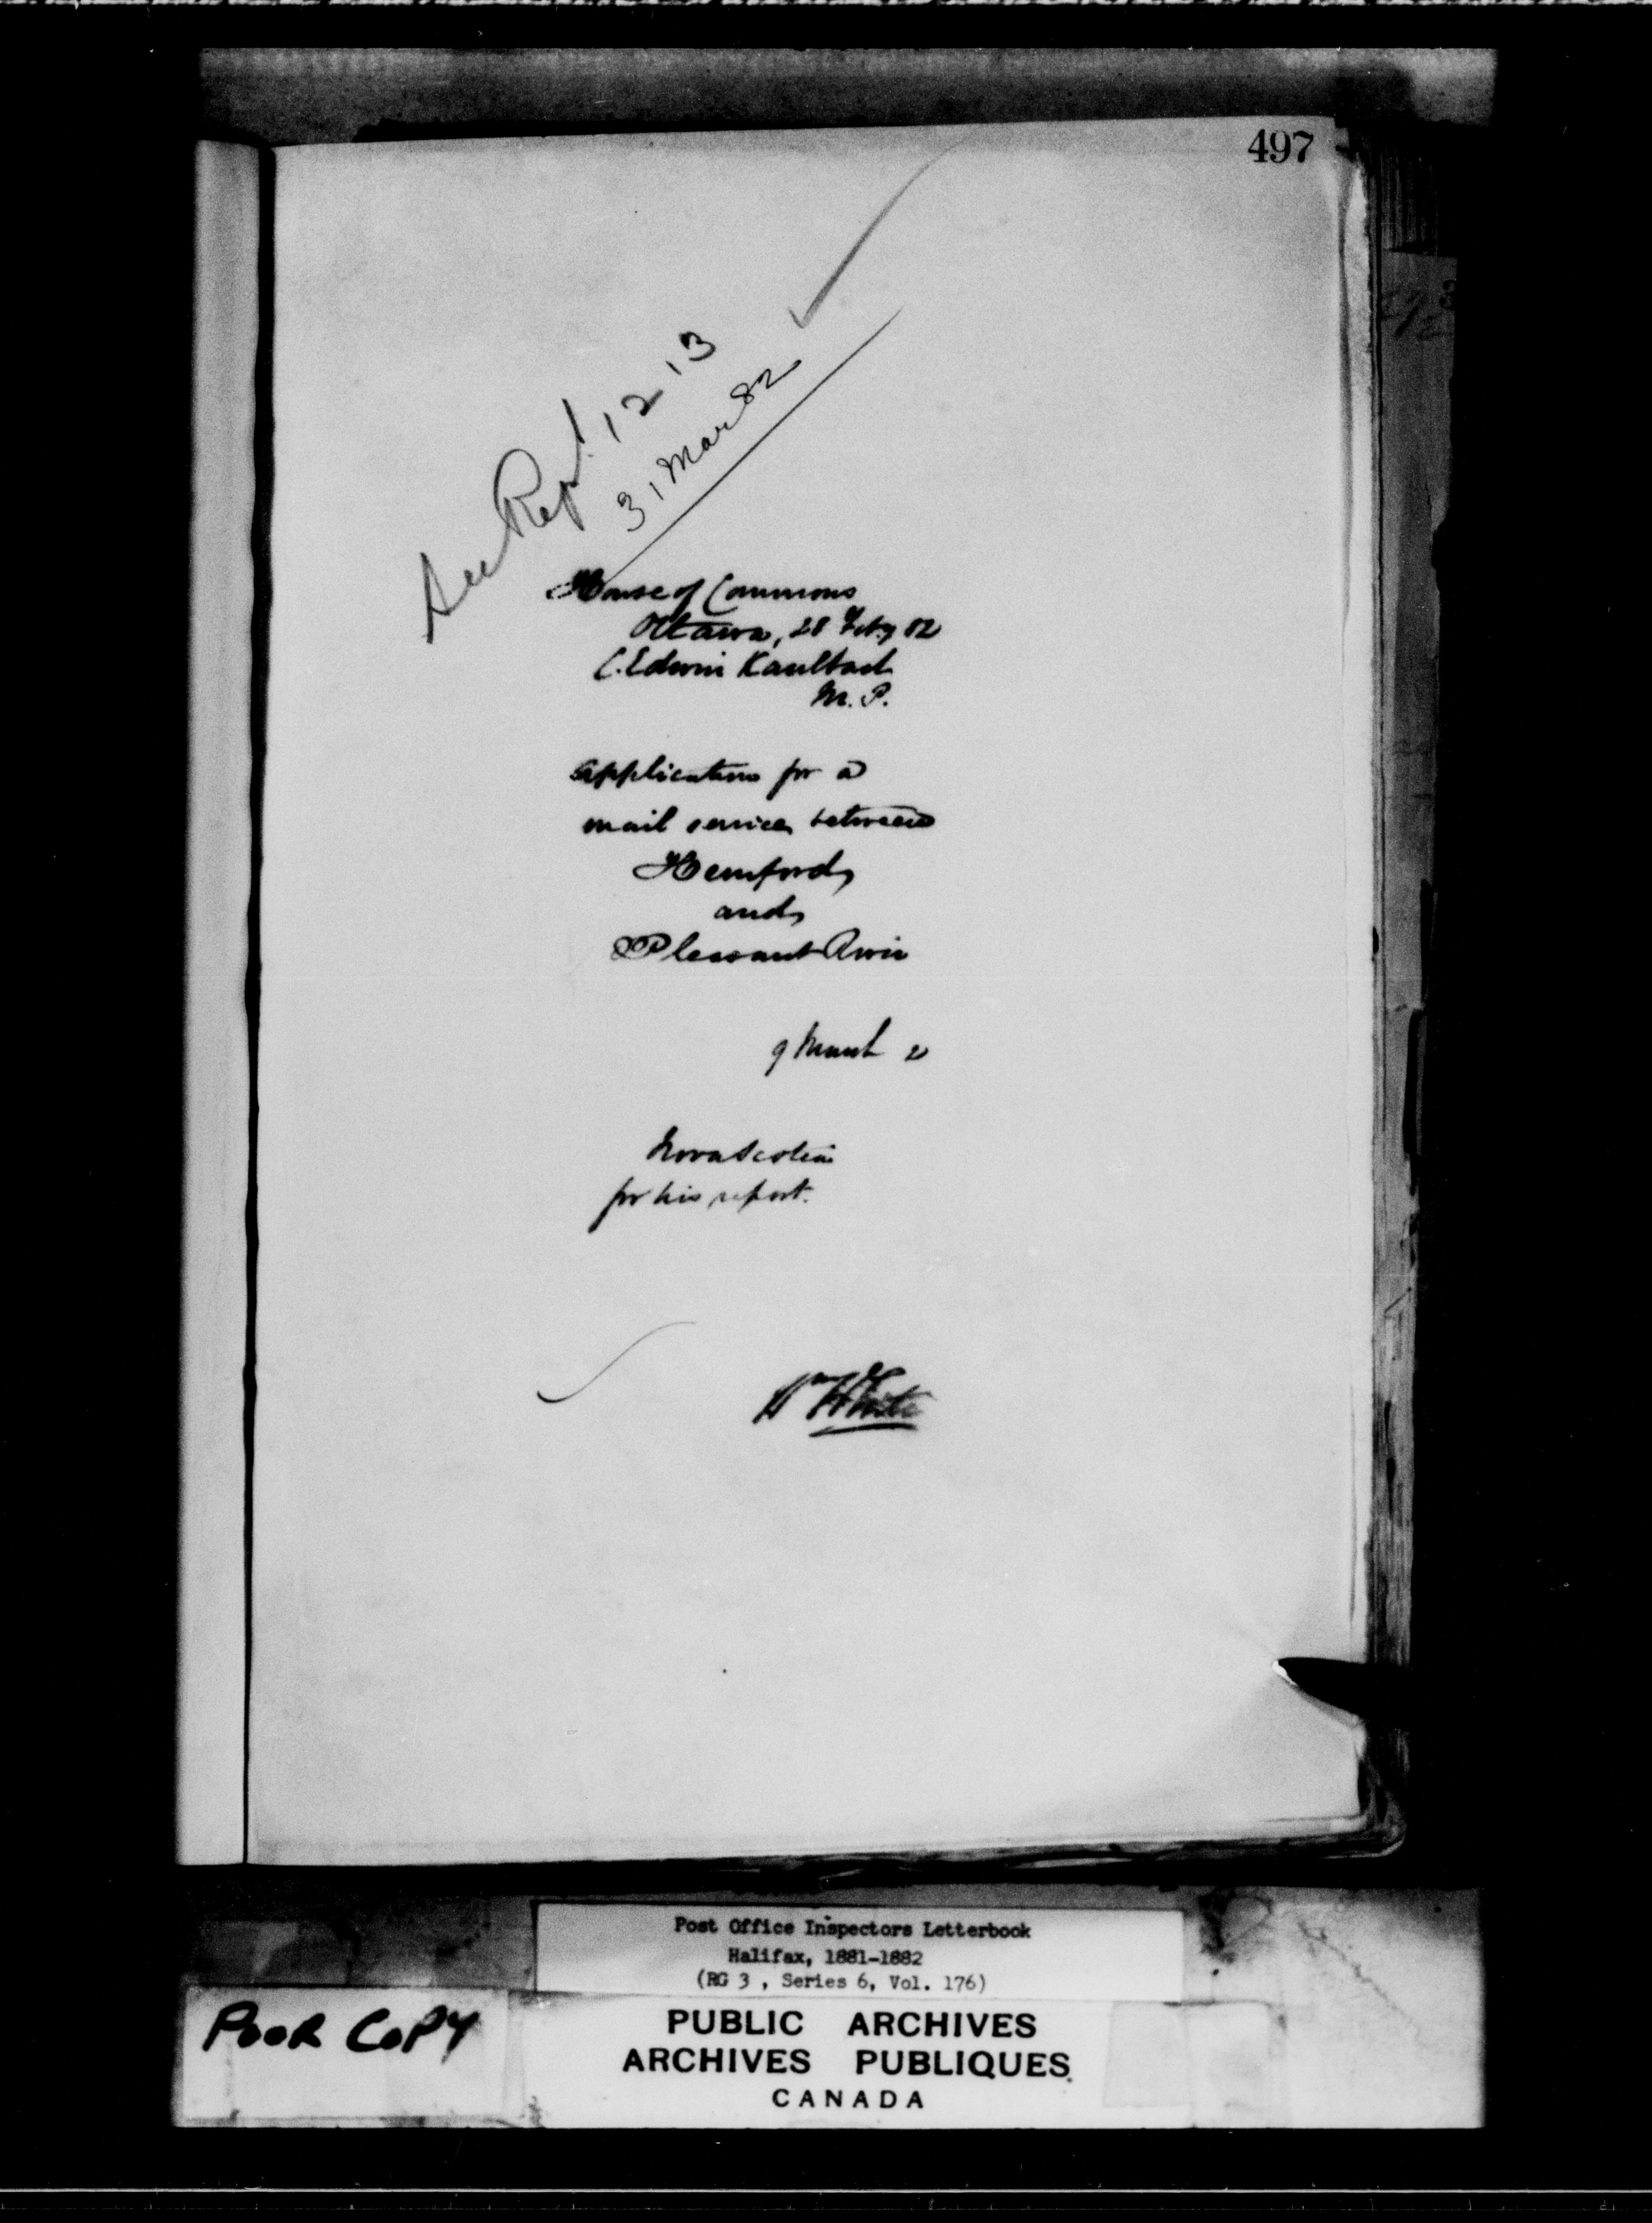 497
See Rept. 1213
31 Mar 82
House of Commons
Ottawa, 28 Feby 82
C. Edwin Kaulbach
M. P.
Application for a
mail service between
Hemford
and
Pleasant River
9 March 2
Nova Scotia
for his report.
Wm White
Post Office Inspectors Letterbook
Halifax, 1881-1882
(RG 3 , Series 6, Vol. 176)
POOR COPY
PUBLIC ARCHIVES
ARCHIVES PUBLIQUES
CANADA